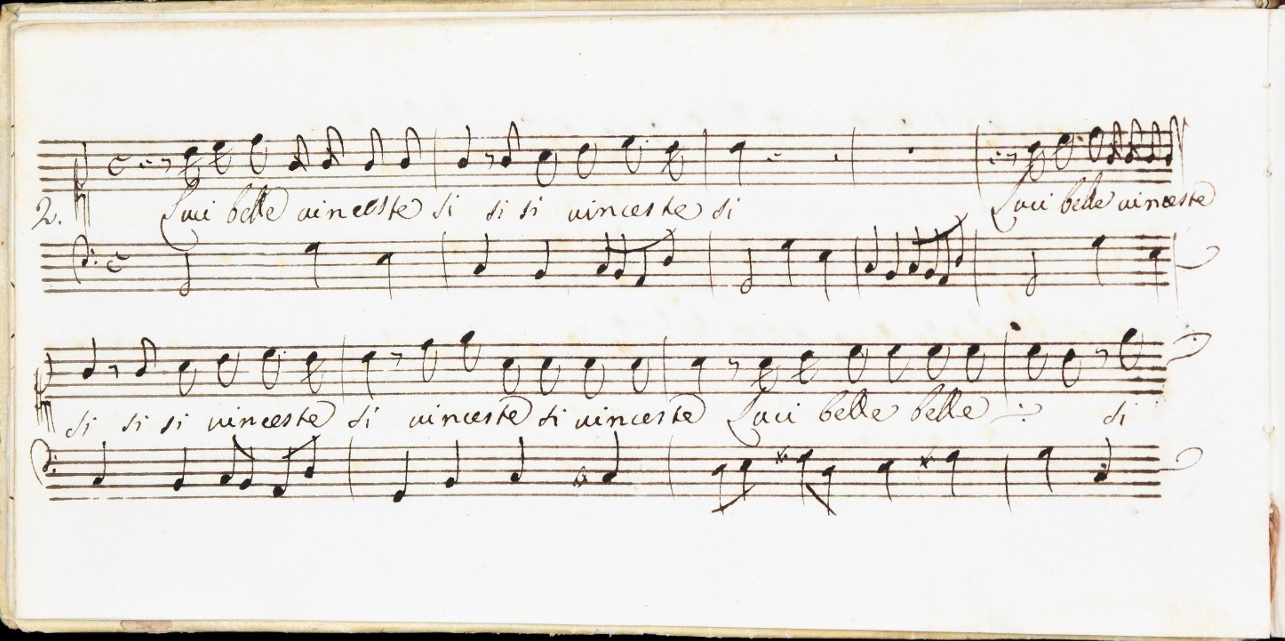 2. Luci belle vinceste si si si vinceste si Luci belle vinceste
si si si vinceste si vinceste si vinceste Luci belle belle :: si